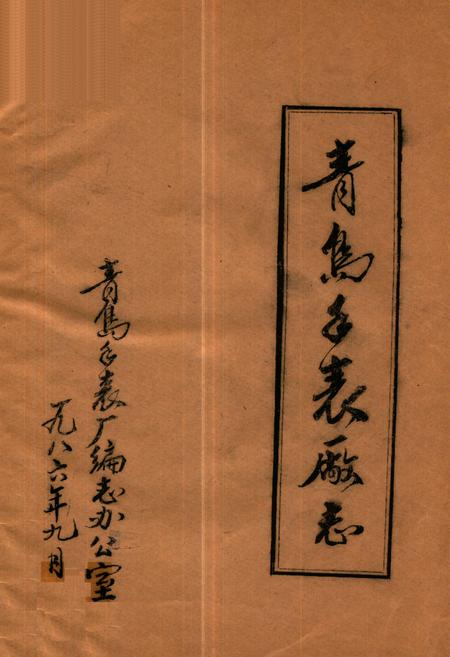 青島手表廠志
青島手表厂编志办公室
一九八六年九月